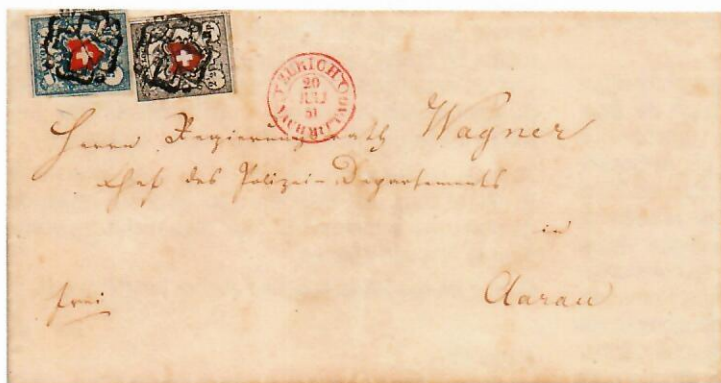 ZÜRICH
20
JULI
51
NACHMITTAG
Herrn Regierungsrath Wagner
Chef des Polizei-Departements
in
Aarau
frei